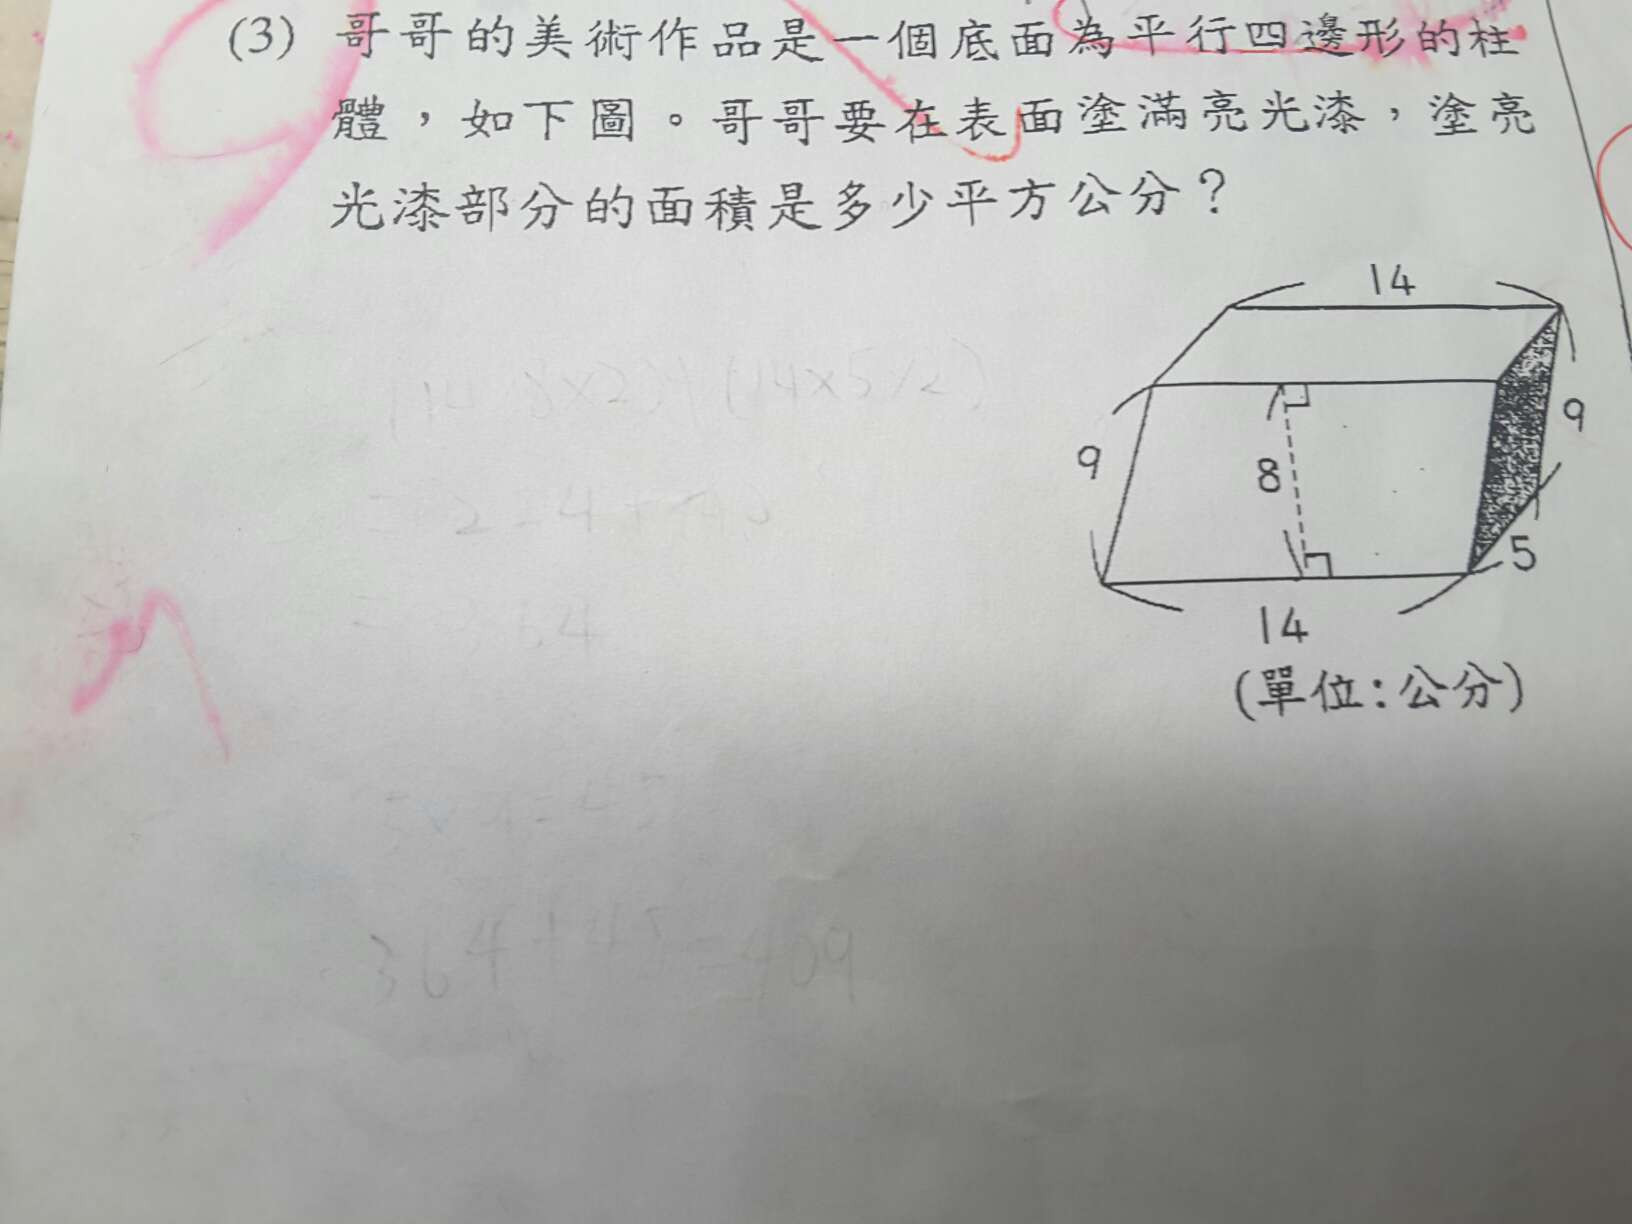 (3) 哥哥的美術作品是一個底面為平行四邊形的柱
體，如下圖。哥哥要在表面塗滿亮光漆，塗亮
光漆部分的面積是多少平方公分？
14
9
9
8
5
14
(單位：公分)
364+45=409